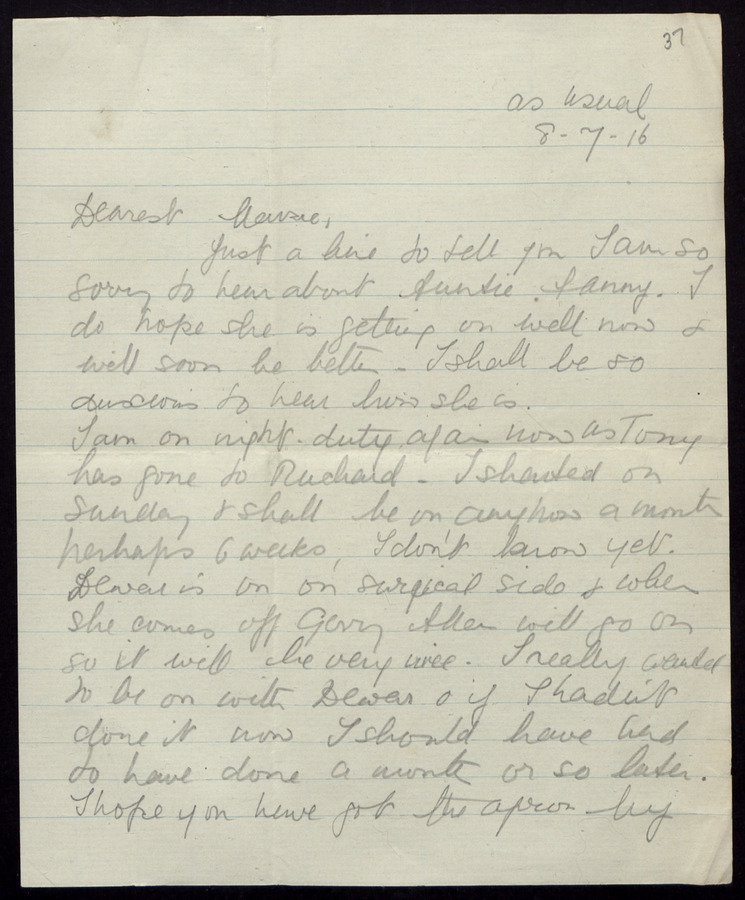 37
as usual
8-7-16
Dearest
Just a line to tell you I am so
sorry to hear about Auntie Fanny. I
do hope she is getting on well now &
will soon be better - I shall be so
anxious to hear how she is.
I am on night-duty again now as Tony
has gone to - I started on
Sunday & shall be on anyhow a month
perhaps 6 weeks, I don't know yet.
Dewar is on on surgical side & when
she comes off Gerry Allen will go on
so it will be very nice. I really wanted
to be on with Dewar & if I hadn't
done it now I should have had
to have done a month or so later.
I hope you have got the apron by